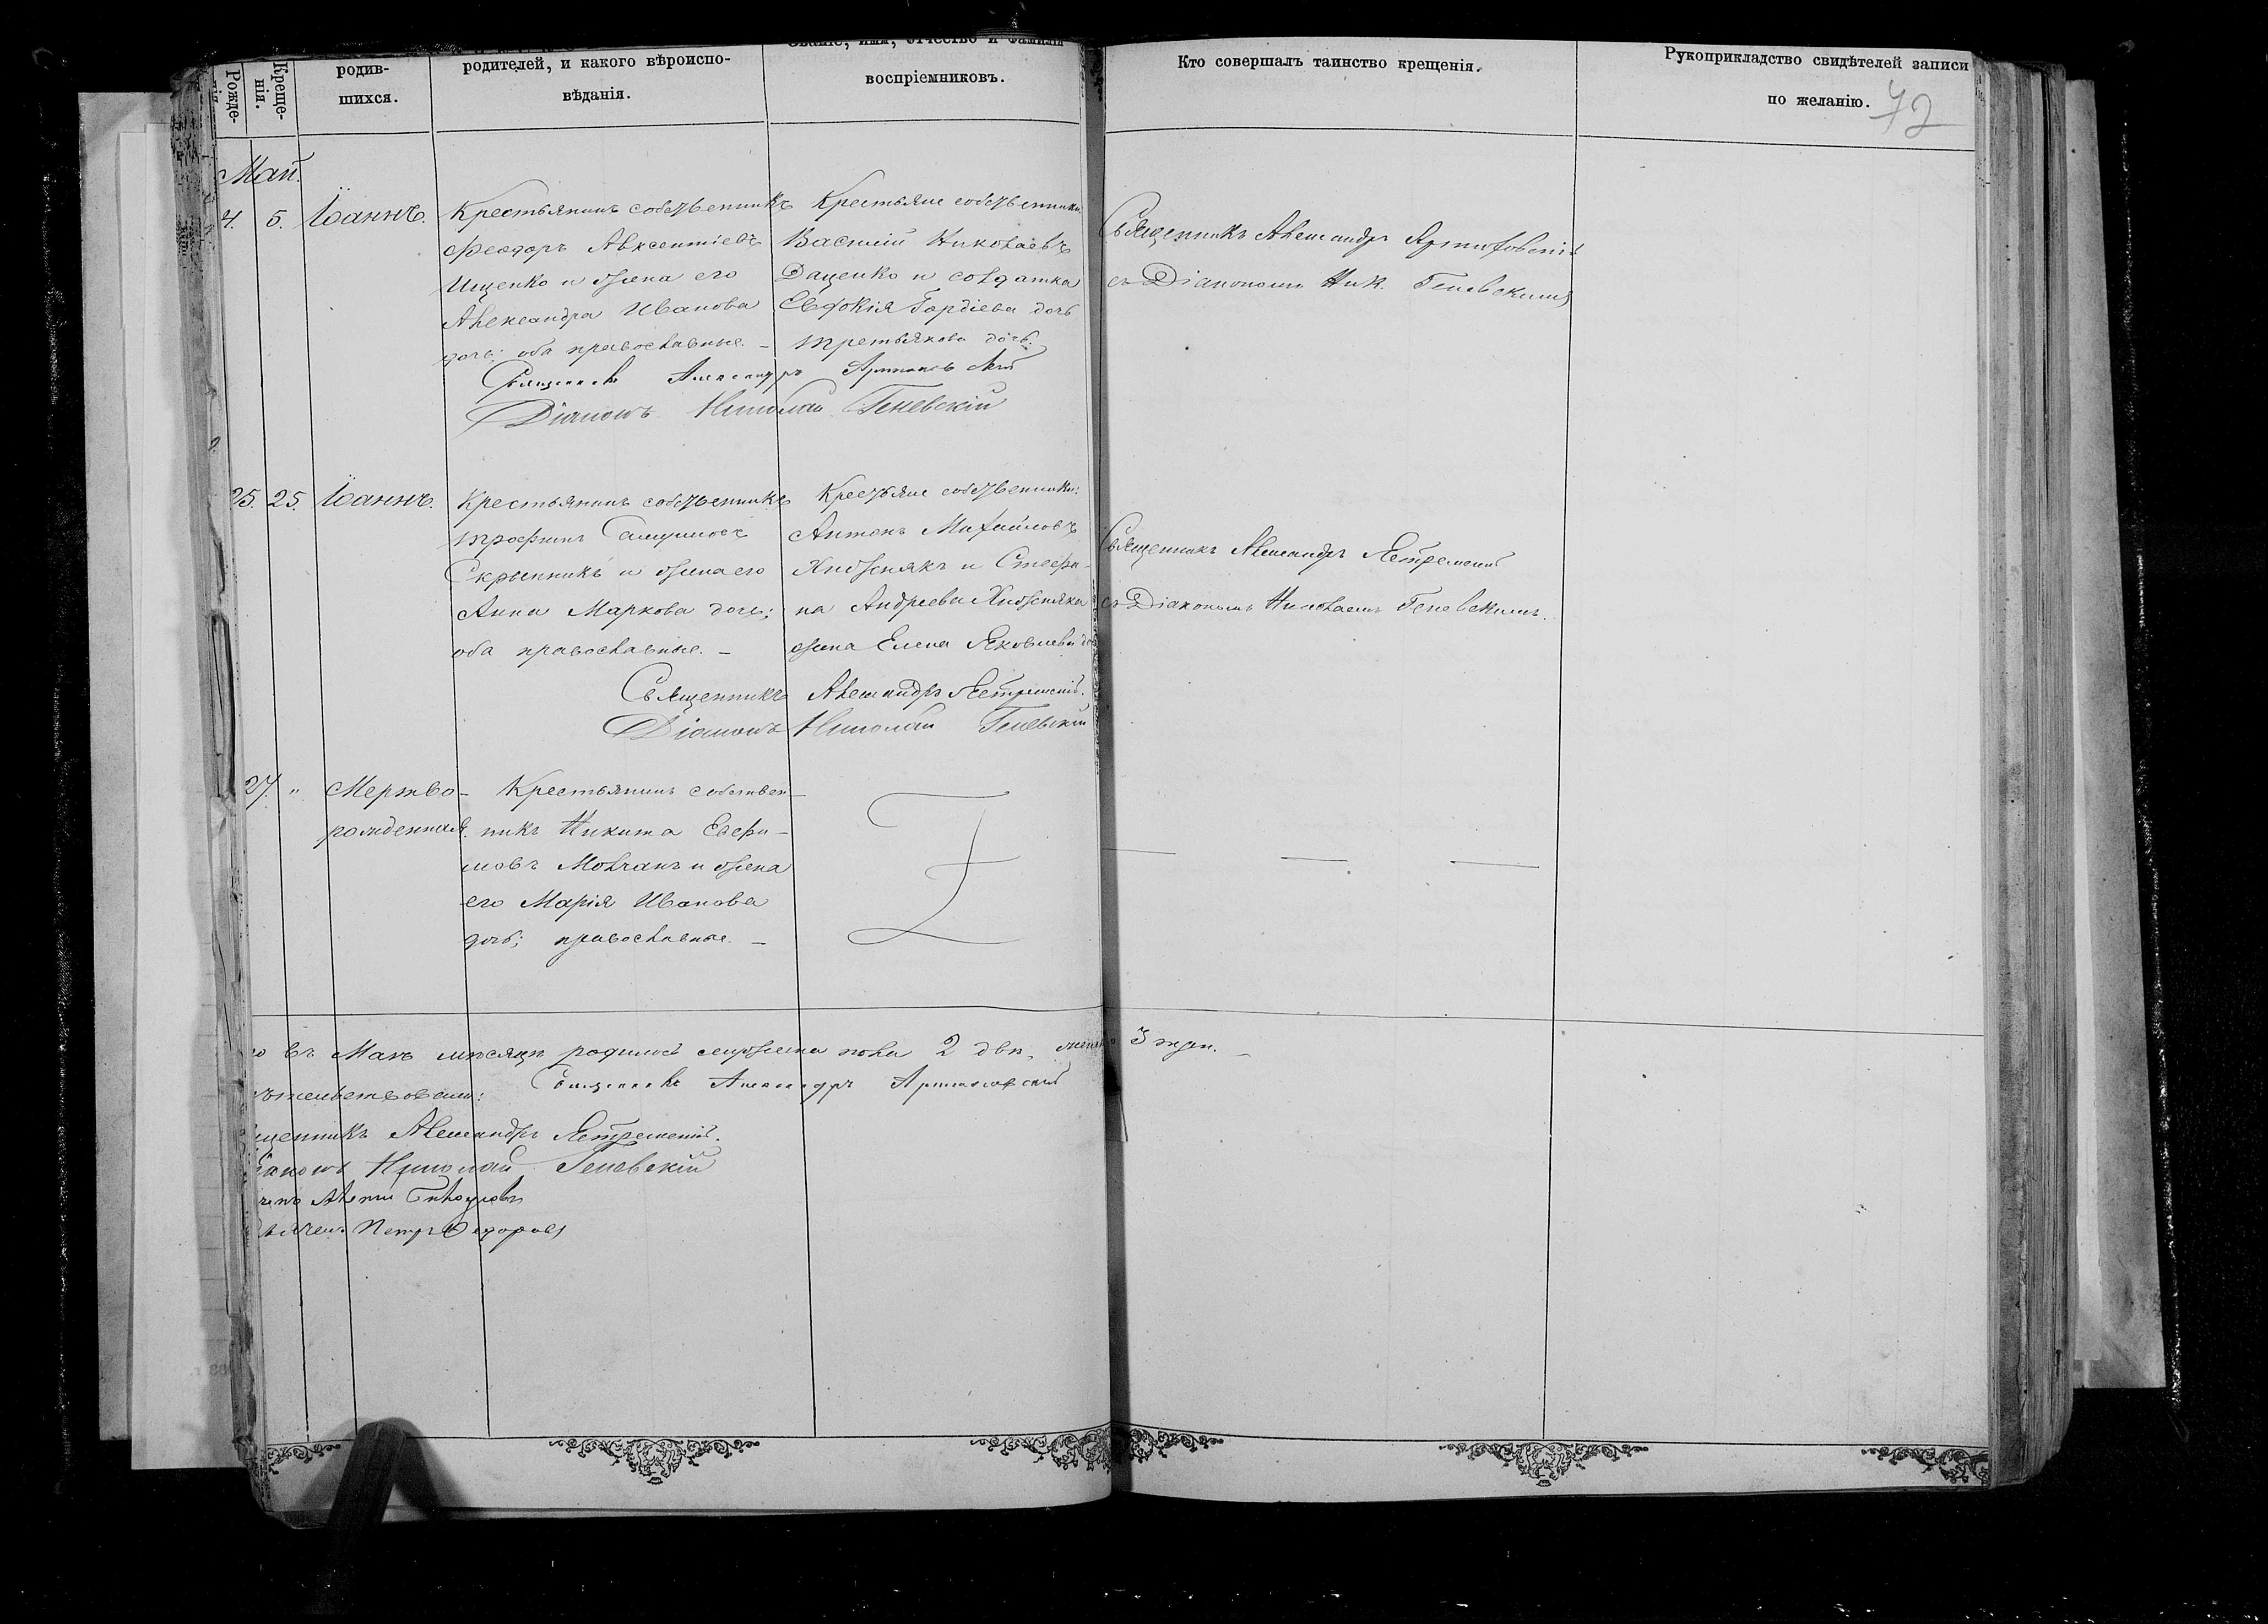 Рожде-
Креще-
нія.
родив-
шихся.
родителей, и какого вѣроиспо-
вѣданія.
Званіе, имя, отчество и фамилія
воспріемниковъ.
Кто совершалъ таинство крещенія.
Рукоприкладство свидѣтелей записи
по желанію.
72
Май.
4. 5. Іоаннъ.
Крестьянинъ собственникъ
Феодоръ Авксентіевъ
Ищенко и жена его
Александра Иванова
дочь; оба православные. —
Крестьяне собственники:
Василій Николаевъ
Даценко и солдатка
Евдокія Гордіева дочь
Третьякова дочь.
Священникъ Александръ
съ Діакономъ Ник. Геневскимъ
Священникъ Александръ
Діаконъ Николай Геневскій
25. 25. Іоаннъ.
Крестьянинъ собственникъ
Трофимъ
Скрынникъ и жена его
Анна Маркова дочь;
оба православные. —
Крестьяне собственники:
Антонъ Михайловъ
и Стефа-
на Андреева
жена Елена Яковлева
Священникъ Александръ Ястремскій
съ Діакономъ Николаемъ Геневскимъ.
Священникъ Александръ Ястремскій.
Діаконъ Николай Геневскій
27. "
Мертво-
рожденная.
Крестьянинъ собствен-
никъ Никита Евфи-
мовъ Молчанъ и жена
его Марія Иванова
дочь; православные. —
въ Маѣ мѣсяцѣ родилось мужеска пола 2 два, 3 жен. —
Священникъ Александръ
Александръ Ястремскій.
Николай Геневскій
Петръ Федоровъ